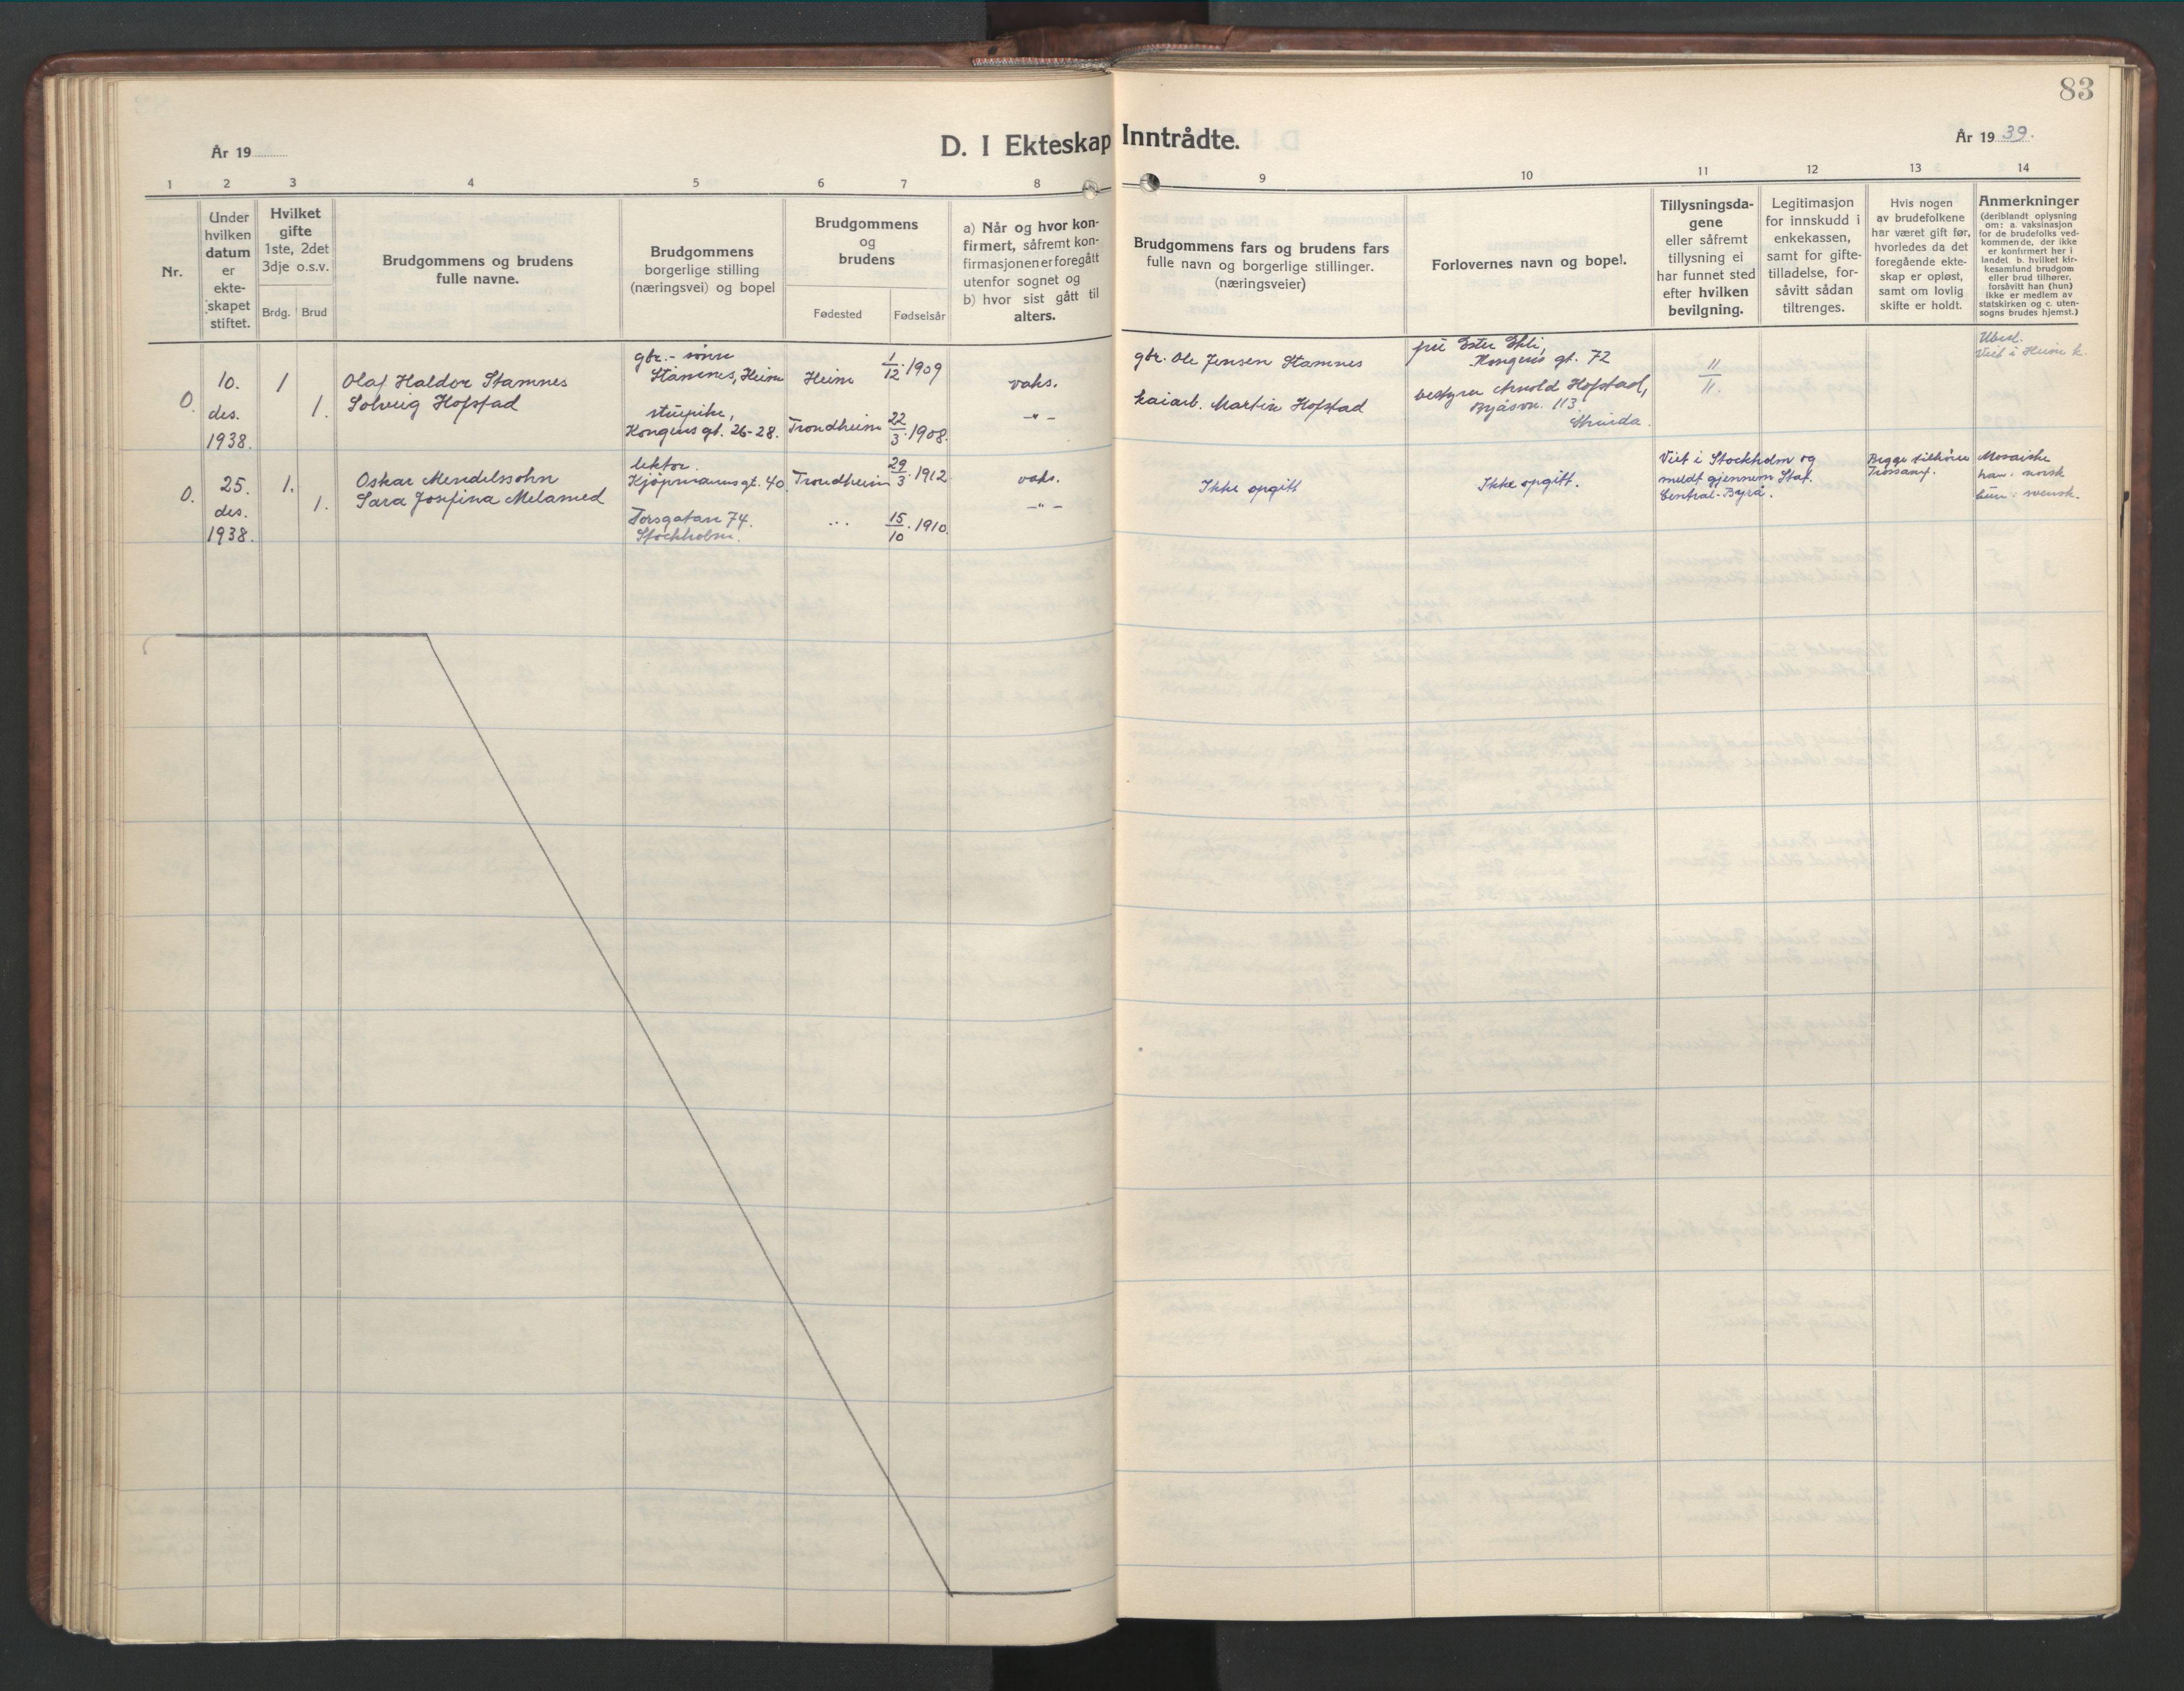 83
År 19
D. I Ekteskap Inntrådte.
År 1939.
1 2 3 4 5 6 7 8 9 10 11 12 13 14
Nr.
Under
hvilken
datum
er
ekte-
skapet
stiftet.
Hvilket
gifte
1ste, 2det
3dje o.s.v.
Brdg. Brud
Brudgommens og brudens
fulle navne.
Brudgommens
borgerlige stilling
(næringsvei) og bopel
Brudgommens
og
brudens
Fødested Fødselsår
a) Når og hvor kon-
firmert, såfremt kon-
firmasjonen er foregått
utenfor sognet og
b) hvor sist gått til
alters.
Brudgommens fars og brudens fars
fulle navn og borgerlige stillinger.
(næringsveier)
Forlovernes navn og bopel.
Tillysningsda-
gene
eller såfremt
tillysning ei
har funnet sted
efter hvilken
bevilgning.
Legitimasjon
for innskudd i
enkekassen,
samt for gifte-
tilladelse, for-
såvitt sådan
tiltrenges.
Hvis nogen
av brudefolkene
har været gift før,
hvorledes da det
foregående ekte-
skap er opløst,
samt om lovlig
skifte er holdt.
Anmerkninger
(deriblandt oplysning
om: a. vaksinasjon
for de brudefolks ved-
kommende, der ikke
er konfirmert her i
landet. b. hvilket kir-
kesamfund brudgom
eller brud tilhører,
forsåvitt han (hun)
ikke er medlem av
statskirken og c. uten-
sogns brudes hjemst.)
O.
10.
des.
1938.
1
1.
Olaf Haldor Stamnes
Solveig Hofstad
gbr.-sønn
Stamnes, Heim
stuepike,
Kongens gt. 26-28.
Heim
Trondheim
1/12 1909
22/3 1908.
vaks.
-"-
gbr. Ole Jensen Stamnes
kaiarb. Martin Hofstad
Ester
Kongens gt. 72
bestyrer Arnold Hofstad,
Byåsvn. 113.
Strinda.
11/11.
Ubesl.
Viet i Heim k.
O.
25.
des.
1938.
1.
1.
Oskar Mendelssohn
Sara Josefina Melamed
lektor.
Kjøpmannsgt. 40.
Torsgatan 74.
Stockholm.
Trondheim
..."
29/3 1912
15/10 1910.
vaks.
-"-
Ikke opgitt
Ikke opgitt.
Viet i Stockholm og
meldt gjennem Stat.
Central-Byrå.
Begge tilhører
Trossamf.
Mosaiske
han: norsk
hun: svensk.